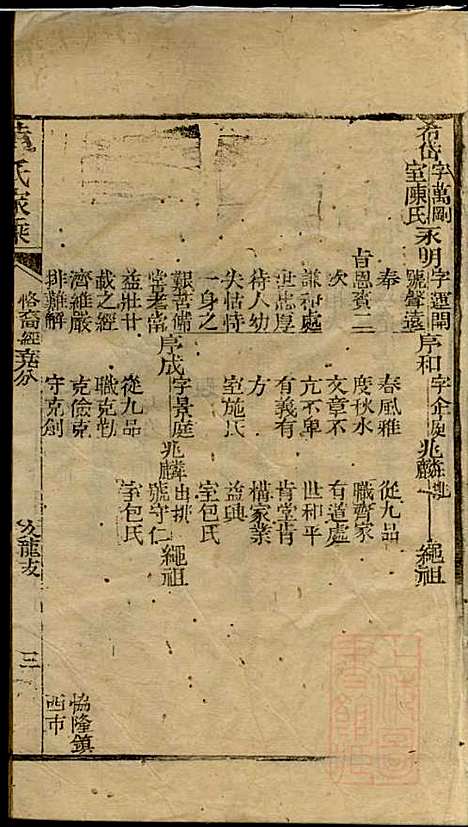 希岱
字萬剛
室陳氏
永明
字運開
號聲遠
序和
兆麟
繩祖
奉
旨恩賓二
次
謙和處
世忠厚
待人幼
失怙恃
一身之
艱苦備
嘗老當
益壯廿
載之經
濟維嚴
排難解
春風雅
度秋水
文章不
亢不卑
有義有
方
室施氏
從九品
職齊家
有道處
世和平
肯堂肯
構家業
益興
室包氏
序成
字景庭
從九品
職克勤
克儉克
守克創
兆麟
號守仁
室包氏
繩祖
協隆鎮
西市
氏家乘
修裔經
九龍支
三